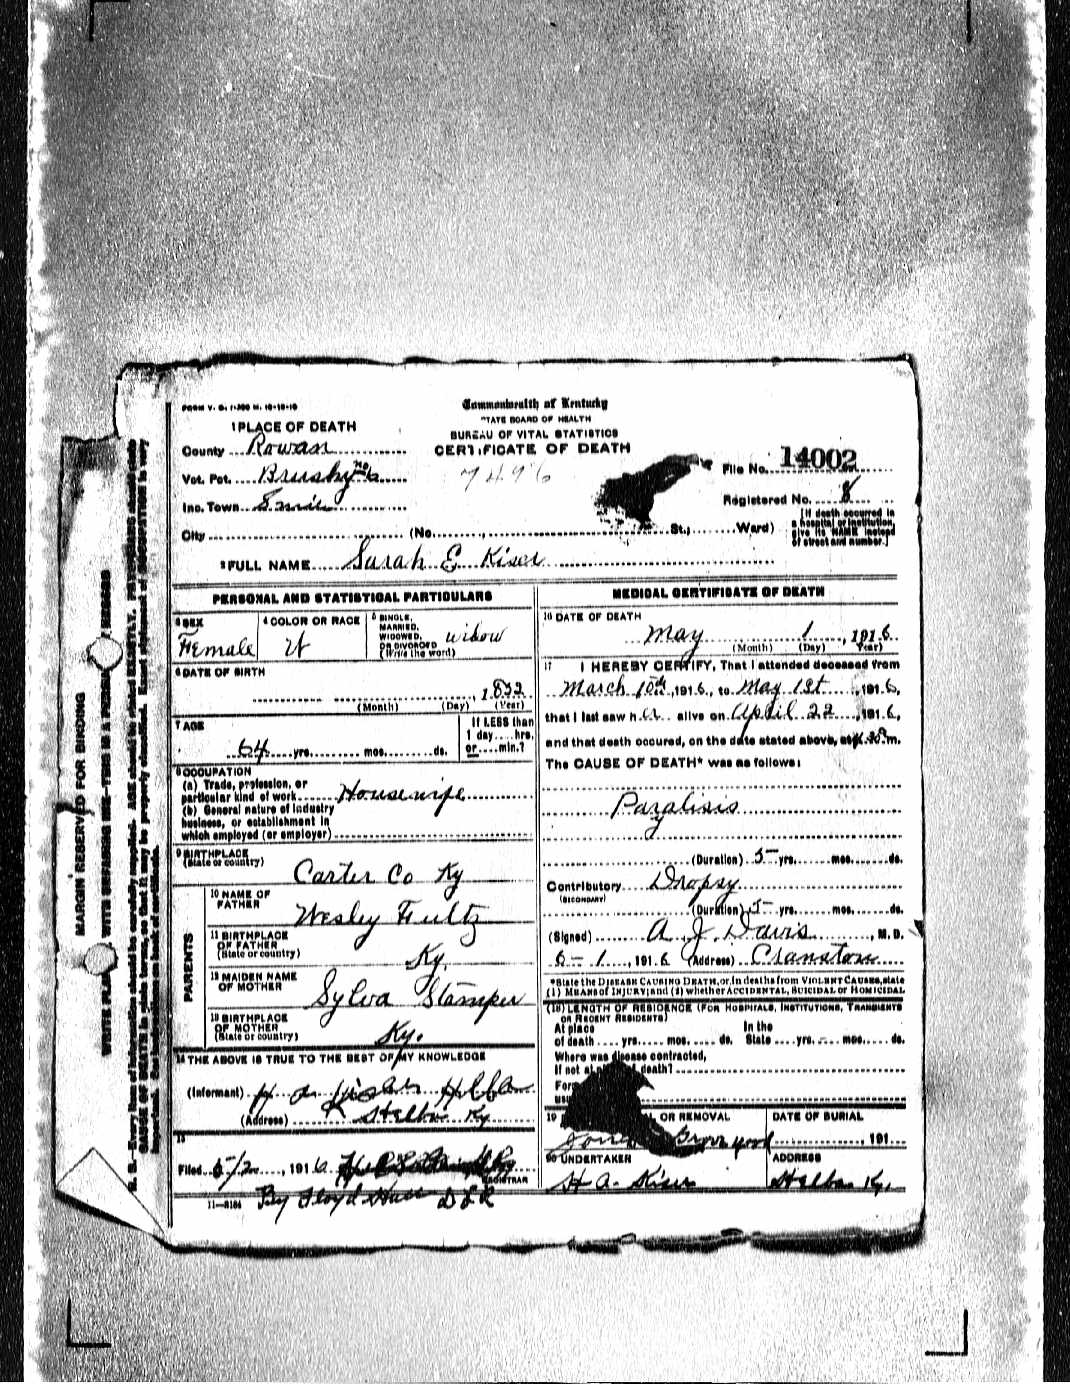 FORM V. S. 1-300 M. 10-18-10
Commonwealth of Kentucky
STATE BOARD OF HEALTH
BUREAU OF VITAL STATISTICS
CERTIFICATE OF DEATH
1 PLACE OF DEATH
County Rowan
Vot. Pct. Brushy No 6
Inc. Town
City (No. St.; Ward)
7496
File No. 14002
Registered No. 8
[If death occurred in
a hospital or institution,
give its NAME instead
of street and number.]
2 FULL NAME Sarah E Kiser
PERSONAL AND STATISTICAL PARTICULARS
3 SEX Female
4 COLOR OR RACE W
5 SINGLE,
MARRIED,
WIDOWED,
OR DIVORCED
(Write the word) widow
6 DATE OF BIRTH
, 1832
(Month) (Day) (Year)
7 AGE
64 yrs. mos. ds.
If LESS than
1 day.....hrs.
or.....min.?
8 OCCUPATION
(a) Trade, profession, or
particular kind of work Housewife
(b) General nature of industry
business, or establishment in
which employed (or employer)
9 BIRTHPLACE
(State or country)
Carter Co Ky
PARENTS
10 NAME OF
FATHER
Wesley Fultz
11 BIRTHPLACE
OF FATHER
(State or country) Ky.
12 MAIDEN NAME
OF MOTHER
Sylva Stamper
13 BIRTHPLACE
OF MOTHER
(State or country) Ky.
14 THE ABOVE IS TRUE TO THE BEST OF MY KNOWLEDGE
(Informant)
(Address) Ky
15
Filed 5/2, 1916
REGISTRAR
11-8184 By Floyd
MEDICAL CERTIFICATE OF DEATH
16 DATE OF DEATH
May 1, 1916
(Month) (Day) Year)
17 I HEREBY CERTIFY, That I attended deceased from
March 10th, 1916., to May 1st, 1916,
that I last saw her alive on April 22, 1916,
and that death occured, on the date stated above, at m.
The CAUSE OF DEATH* was as follows:
Paralisis
(Duration) 5 yrs. mos. ds.
Contributory Dropsy
(SECONDARY)
(Duration) 5 yrs. mos. ds.
(Signed) A. J. Davis, M. D.
5-1, 1916 (Address) Cranston
*State the DISEASE CAUSING DEATH, or, in deaths from VIOLENT CAUSES, state
(1) MEANS of INJURY; and (2) whether ACCIDENTAL, SUICIDAL or HOMICIDAL
(18) LENGTH OF RESIDENCE (FOR HOSPITALS, INSTITUTIONS, TRANSIENTS
OR RECENT RESIDENTS)
At place In the
of death yrs. mos. ds. State yrs. mos. ds.
Where was disease contracted,
If not at death?
19 OR REMOVAL
DATE OF BURIAL
, 191
20 UNDERTAKER
H A. Kiser
ADDRESS
Ky.
MARGIN RESERVED FOR BINDING